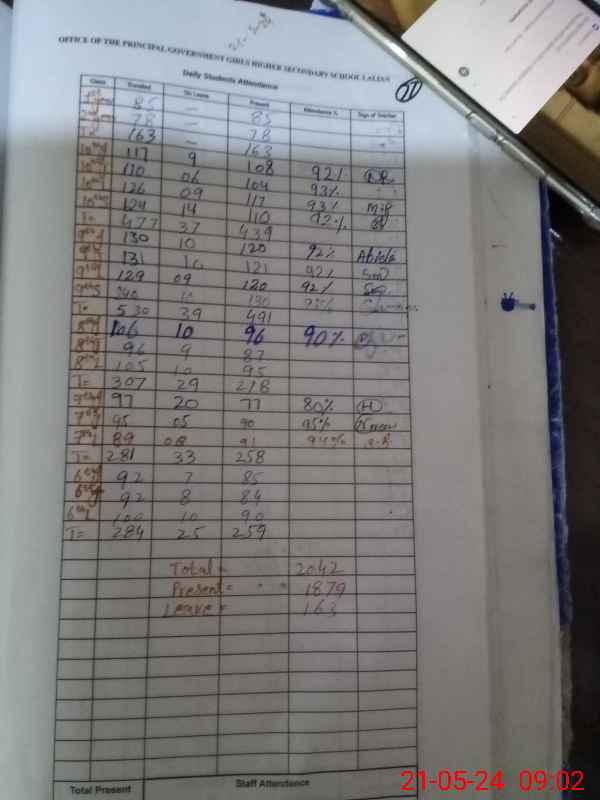 21-5-24
OFFICE OF THE PRINCIPAL GOVERNMENT GIRLS HIGHER SECONDARY SCHOOL LALIAN
Daily Students Attendance
21
Class Enrolled On Leave Present Attendance % Sign of Teacher
1st year 85 — 85
2nd year 78 — 78
T= 163 — 163
10th 117 9 108 92%
10th 110 06 104 93%
10th 126 09 117 93%
10th 124 14 110 92%
T= 477 37 439
9th 130 10 120 92% Abida
9th 131 10 121 92%
9th 129 09 120 92%
9th 140 10 130
T= 530 39 491
8th 106 10 96 90%
8th 96 9 87
8th 105 10 95
T= 307 29 278
7th 97 20 77 80% H
7th 95 05 90 95%
7th 89 08 91 94%
T= 281 33 258
6th 92 7 85
6th 92 8 84
6th 100 10 90
T= 284 25 259
Total = 2042
Present = 1879
Leave = 163
Total Present Staff Attendance
21-05-24 09:02